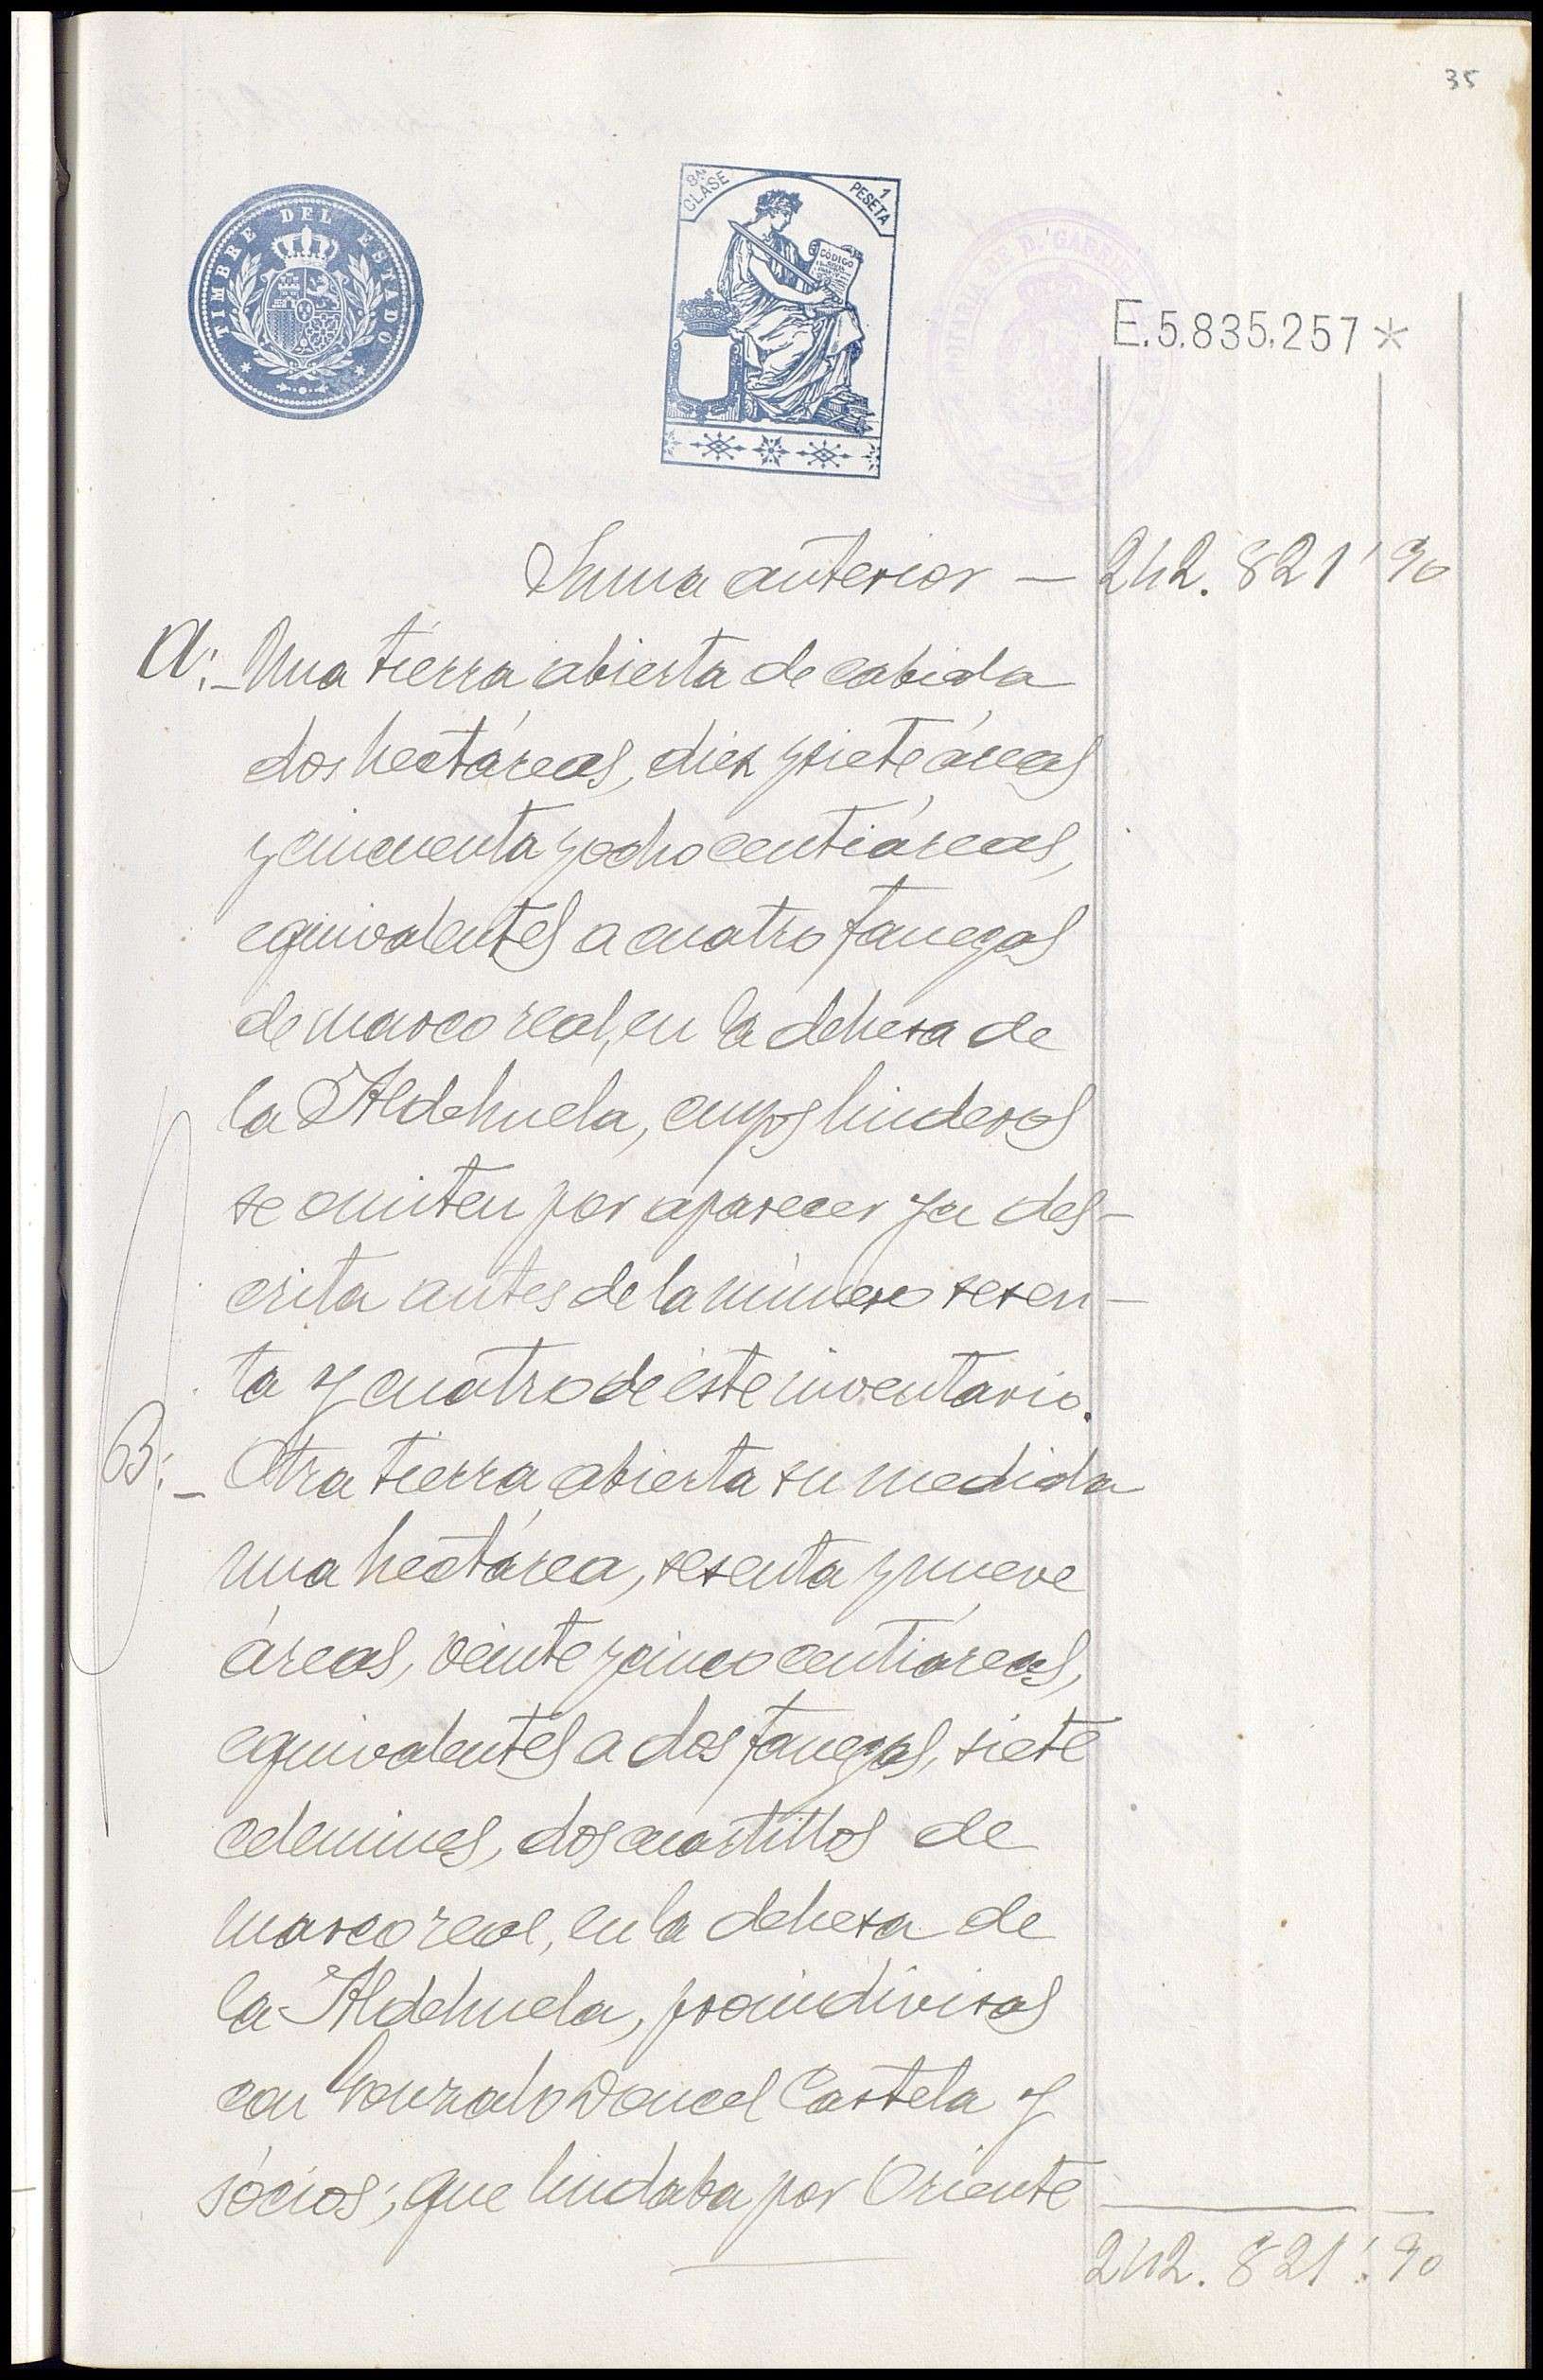 35
TIMBRE DEL ESTADO
8ª CLASE
1 PESETA
CÓDIGO
E.5.835.257*
Suma anterior — 242.821'90
A:- Una tierra abierta de cabida
dos hectáreas, diez y siete áreas
y cincuenta y ocho centiáreas,
equivalentes a cuatro fanegas
de marco real, en la dehesa de
la Aldehuela, cuyos linderos
se omiten por aparecer ya des-
crita antes de la número sesen-
ta y cuatro de éste inventario.
B:- Otra tierra abierta su medida
una hectárea, sesenta y nueve
áreas, veinte y cinco centiáreas,
equivalentes a dos fanegas, siete
celemines, dos cuartillos de
marco real, en la dehesa de
la Aldehuela, proindivisas
con Gonzalo Doncel Castela y
sócios; que lindaba por Oriente
242.821'90